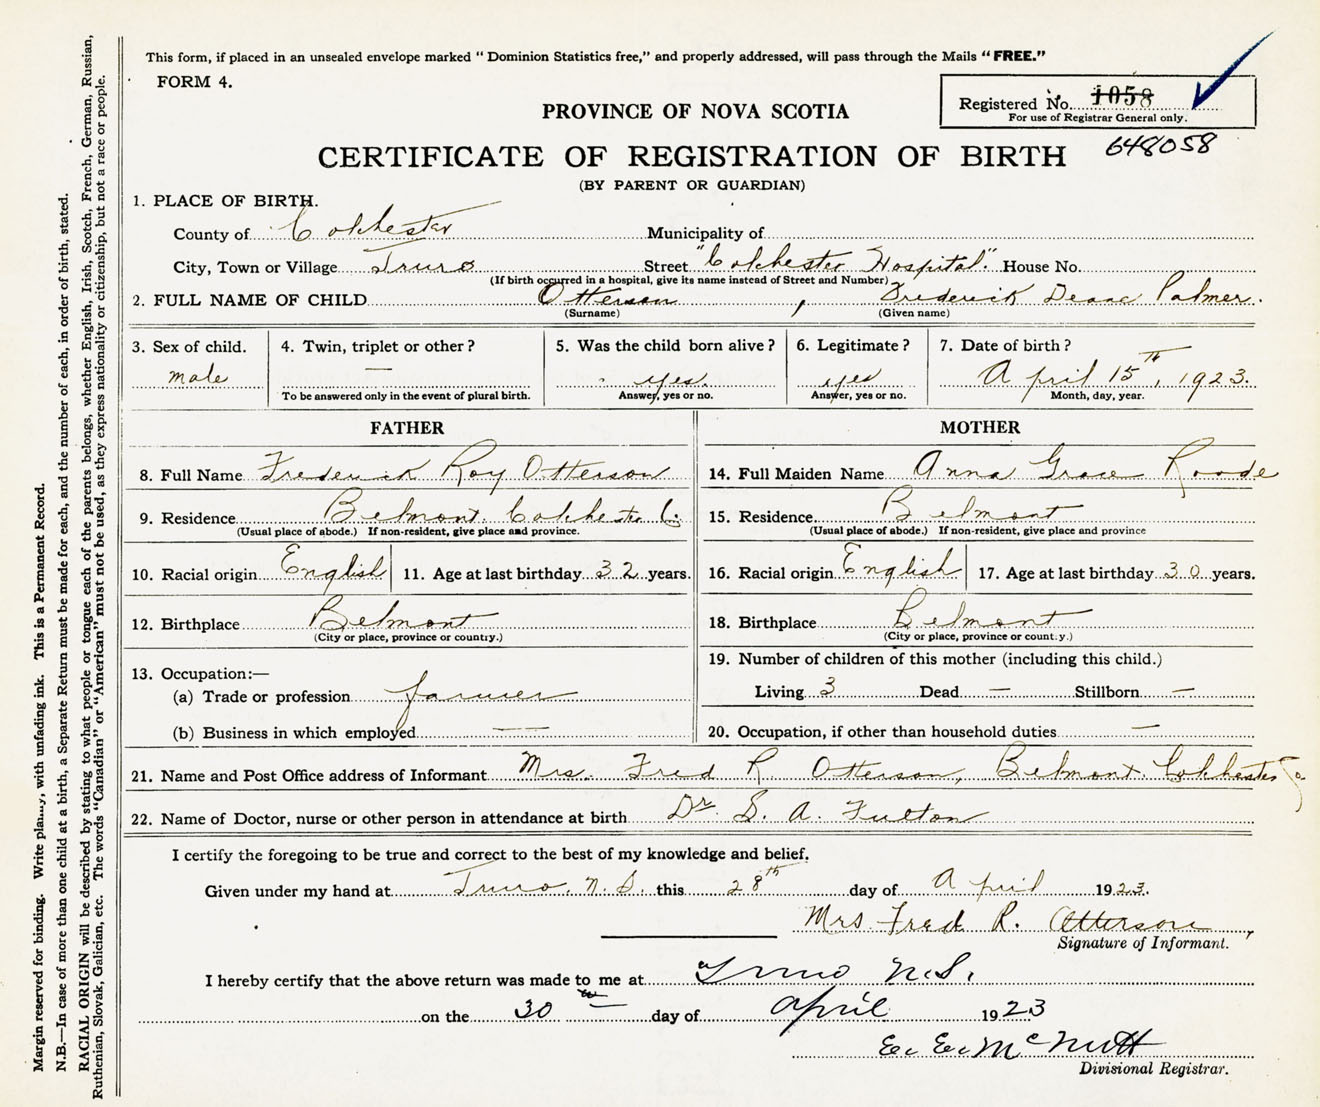 This form, if placed in an unsealed envelope marked "Dominion Statistics free," and properly addressed, will pass through the Mails "FREE."
FORM 4.
Registered No. 1058
For use of Registrar General only.
648058
PROVINCE OF NOVA SCOTIA
CERTIFICATE OF REGISTRATION OF BIRTH
(BY PARENT OR GUARDIAN)
1. PLACE OF BIRTH.
County of Colchester Municipality of
City, Town or Village Truro Street "Colchester Hospital". House No.
(If birth occurred in a hospital, give its name instead of Street and Number)
2. FULL NAME OF CHILD Otterson, Frederick Palmer.
(Surname) (Given name)
3. Sex of child. 4. Twin, triplet or other? 5. Was the child born alive? 6. Legitimate? 7. Date of birth?
male — yes. yes April 15th, 1923.
To be answered only in the event of plural birth. Answer, yes or no. Answer, yes or no. Month, day, year.
FATHER
8. Full Name Frederick Roy Otterson
9. Residence Belmont. Colchester Co.
(Usual place of abode.) If non-resident, give place and province.
10. Racial origin English 11. Age at last birthday 32 years.
12. Birthplace Belmont
(City or place, province or country.)
13. Occupation:—
(a) Trade or profession farmer
(b) Business in which employed —
MOTHER
14. Full Maiden Name Anna Grace Roode
15. Residence Belmont
(Usual place of abode.) If non-resident, give place and province
16. Racial origin English 17. Age at last birthday 30 years.
18. Birthplace Belmont
(City or place, province or country.)
19. Number of children of this mother (including this child.)
Living 3 Dead — Stillborn —
20. Occupation, if other than household duties —
21. Name and Post Office address of Informant Mrs. Fred R. Otterson, Belmont. Colchester Co
22. Name of Doctor, nurse or other person in attendance at birth Dr. S. A. Fulton
I certify the foregoing to be true and correct to the best of my knowledge and belief.
Given under my hand at Truro. N.S. this 28th day of April 1923.
Mrs Fred R. Otterson
Signature of Informant.
I hereby certify that the above return was made to me at Truro N.S.
on the 30 day of April 1923
E. E. McNutt
Divisional Registrar.
Margin reserved for binding. Write plainly, with unfading ink. This is a Permanent Record.
N.B.—In case of more than one child at a birth, a Separate Return must be made for each, and the number of each, in order of birth, stated.
RACIAL ORIGIN will be described by stating to what people or tongue each of the parents belongs, whether English, Irish, Scotch, French, German, Russian,
Ruthenian, Slovak, Galician, etc. The words "Canadian" or "American" must not be used, as they express nationality or citizenship, but not a race or people.